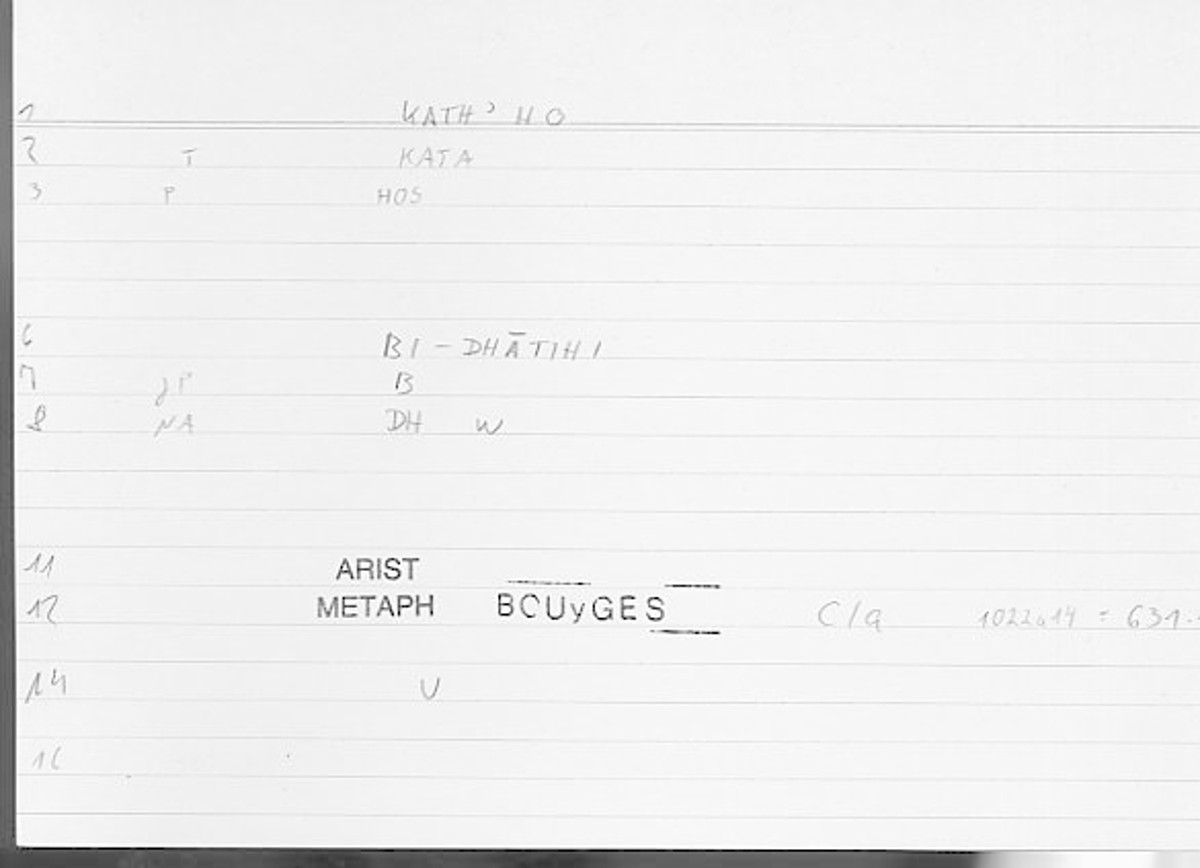 1 KATH' HO
2 T KATA
3 P HOS
6 BI-DHĀTIHI
7 B
8 NA DH W
11 ARIST
12 METAPH BOUyGES C/a 1022a14 = 631.
14 U
16